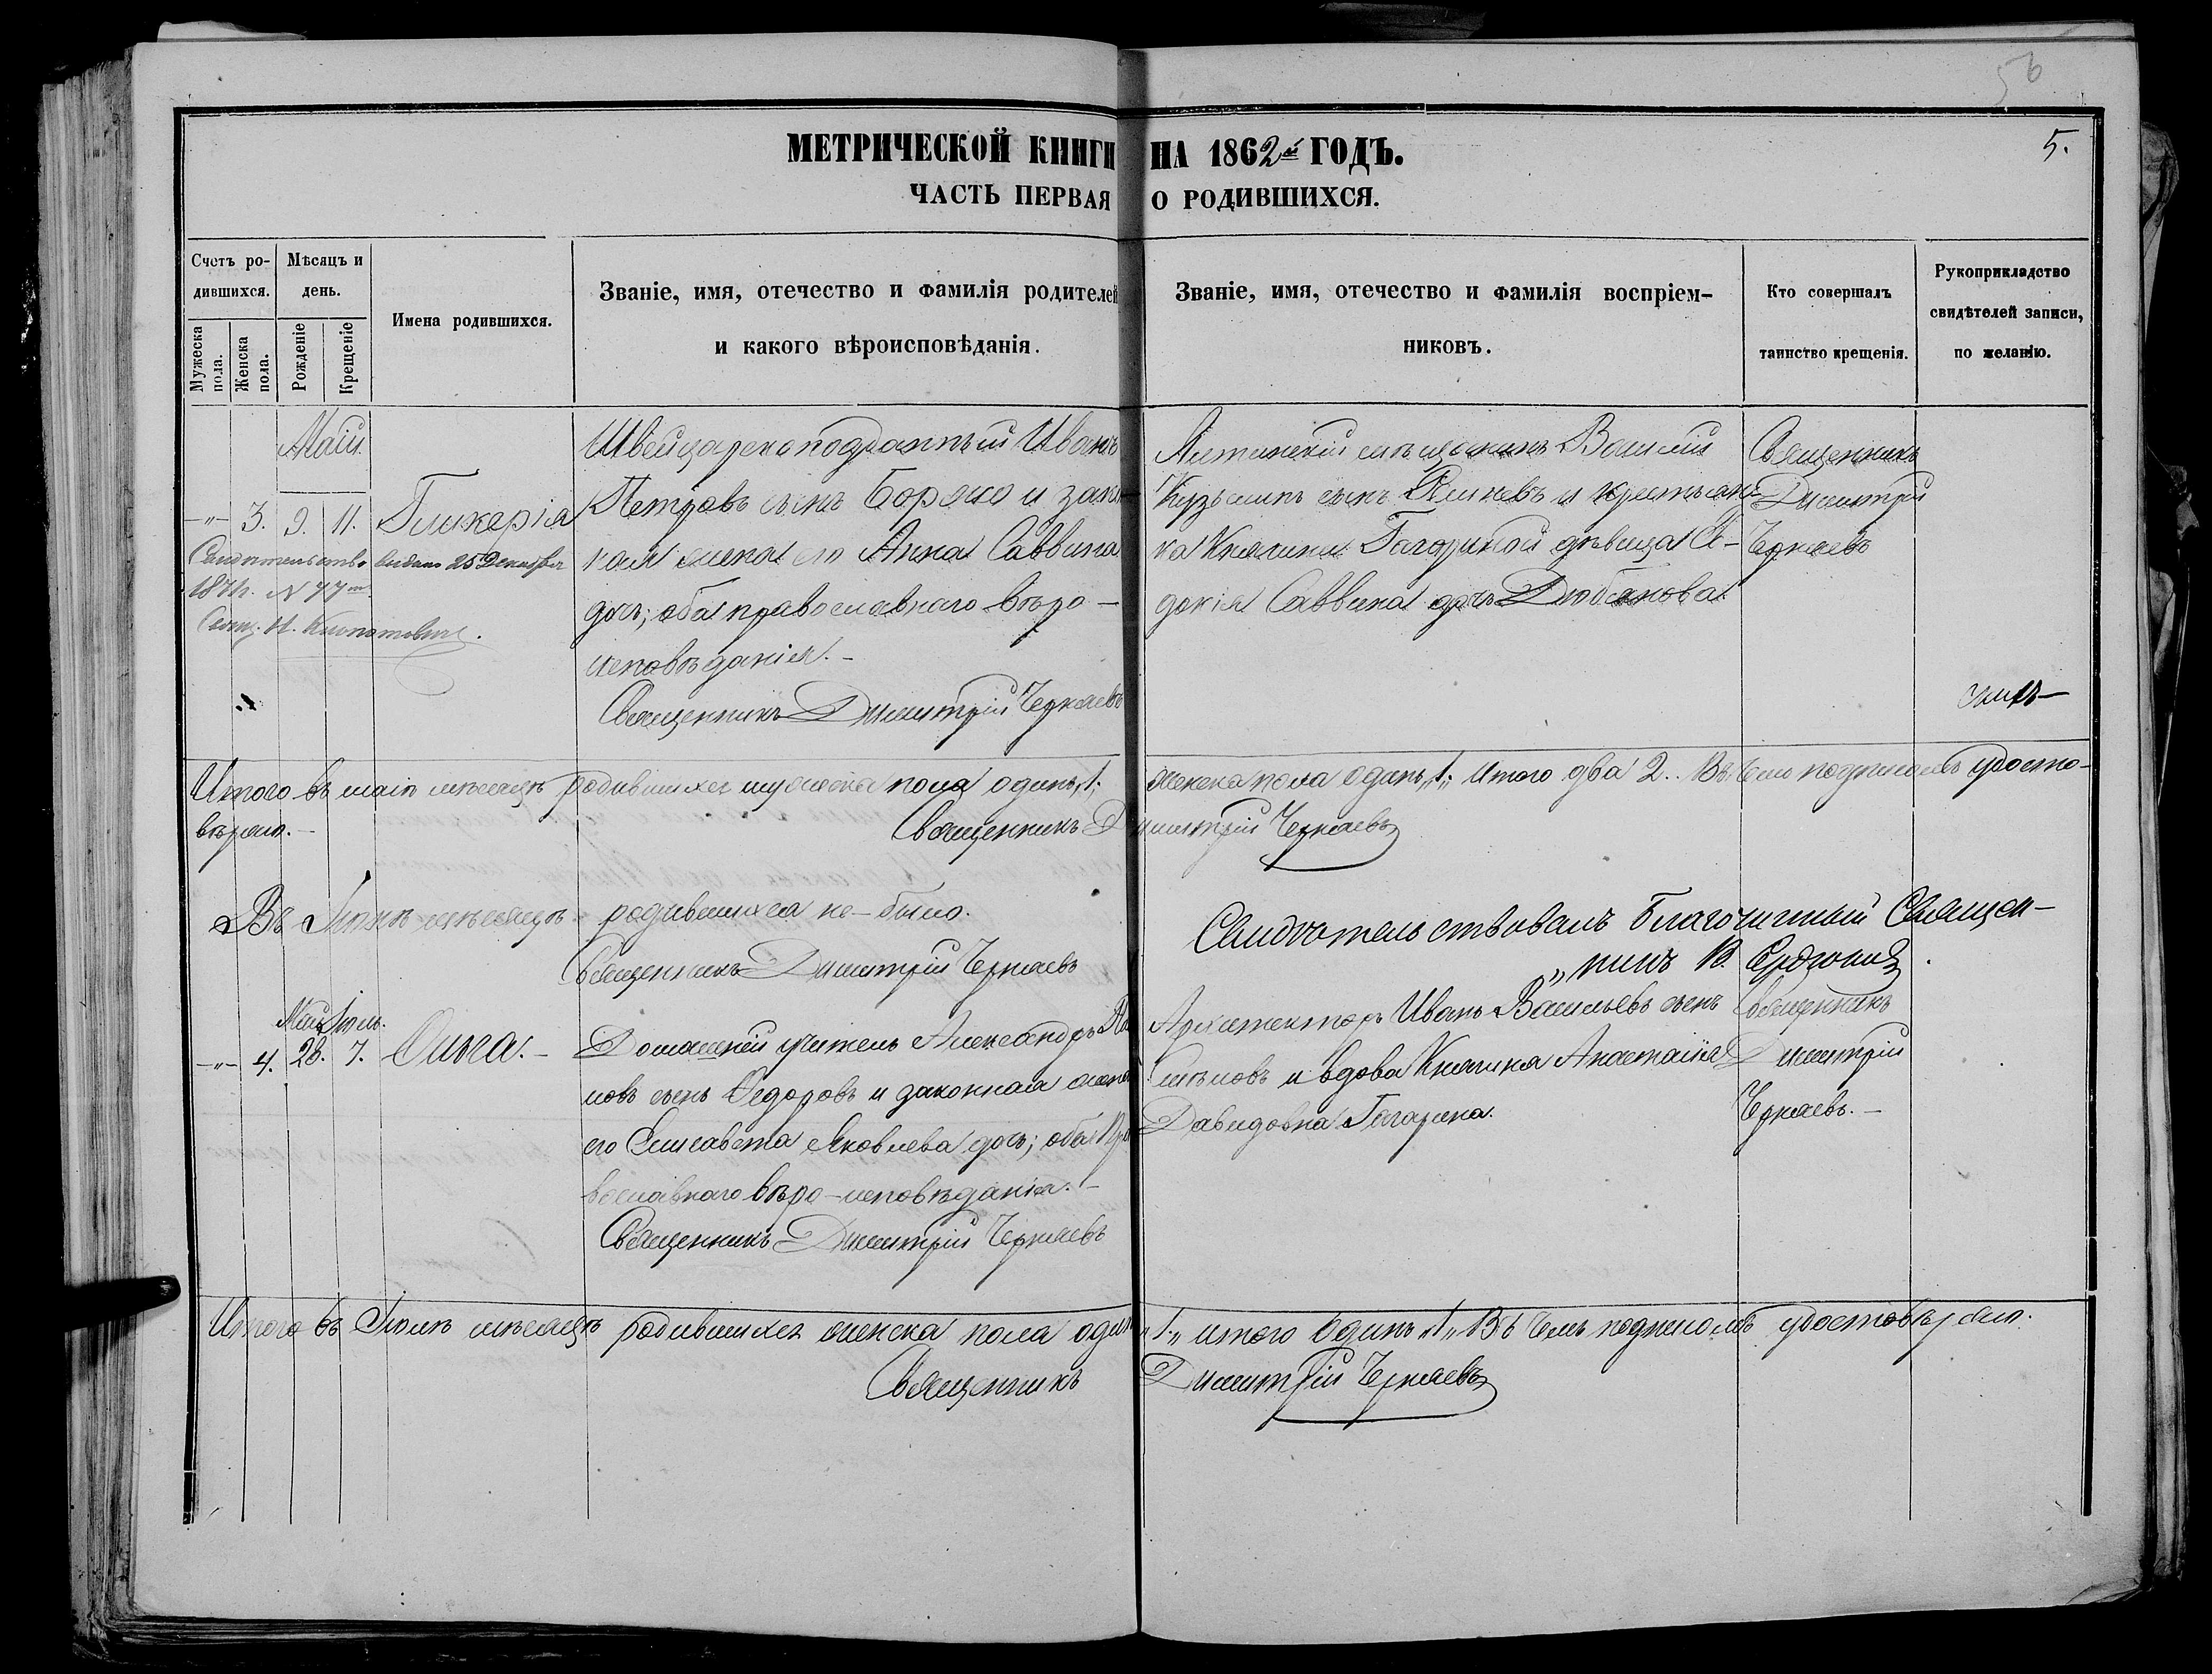 56
5.
МЕТРИЧЕСКОЙ КНИГИ НА 1862й ГОДЪ.
ЧАСТЬ ПЕРВАЯ О РОДИВШИХСЯ.
Счетъ ро-
дившихся.
Мѣсяцъ и
день.
Мужеска
пола.
Женска
пола.
Рожденіе
Крещеніе
Имена родившихся.
Званіе, имя, отечество и фамилія родителей
и какого вѣроисповѣданія.
Званіе, имя, отечество и фамилія воспріем-
никовъ.
Кто совершалъ
таинство крещенія.
Рукоприкладство
свидѣтелей записи,
по желанію.
Маій
-"- 3. 9. 11. Гликерія
Свидѣтельство выдано 25 Декабря
1871г. N 77m.
Свящ. Н.
Швейцарскоподданный Иванъ
Петровъ сынъ Борако и закон
ная жена его Анна Саввина
дочь; оба православнаго вѣро-
исповѣданія.-
Священникъ Димитрій Черняевъ
Ялтинскій мѣщанинъ Василій
Кузьминъ сынъ и крестьян-
ка Княгини Гагариной дѣвица Ев-
докія Саввина дочь Дюбанова.
Священникъ
Димитрій
Черняевъ
Итого въ маіѣ мѣсяцѣ родившихся мужеска пола одинъ „1; женска пола одинъ „1„ Итого два 2.. Въ чемъ подписомъ удосто-
вѣряю.-
Священникъ Димитрій Черняевъ
Въ Іюнѣ мѣсяцѣ родившихся не-было.
Священникъ Димитрій Черняевъ
Свидѣтельствовалъ Благочинный Священ-
„никъ В.
Май Іюль.
-"- 4. 28. 7. Ольга.-
Домашній учитель Александръ
новъ сынъ Ѳедоровъ и законная жена
его Елисавета Яковлева дочь; оба Пра
вославнаго вѣро-исповѣданія.-
Священникъ Димитрій Черняевъ
Архитекторъ Иванъ Васильевъ сынъ
и вдова Княгиня Анастасія
Давидовна Гагарина.
Священникъ
Димитрій
Черняевъ.-
Итого въ Іюлѣ мѣсяцѣ родившихся женска пола один „1.„ итого Одинъ „1„ Въ чемъ подписомъ удостовѣряю.
Священникъ Димитрій Черняевъ